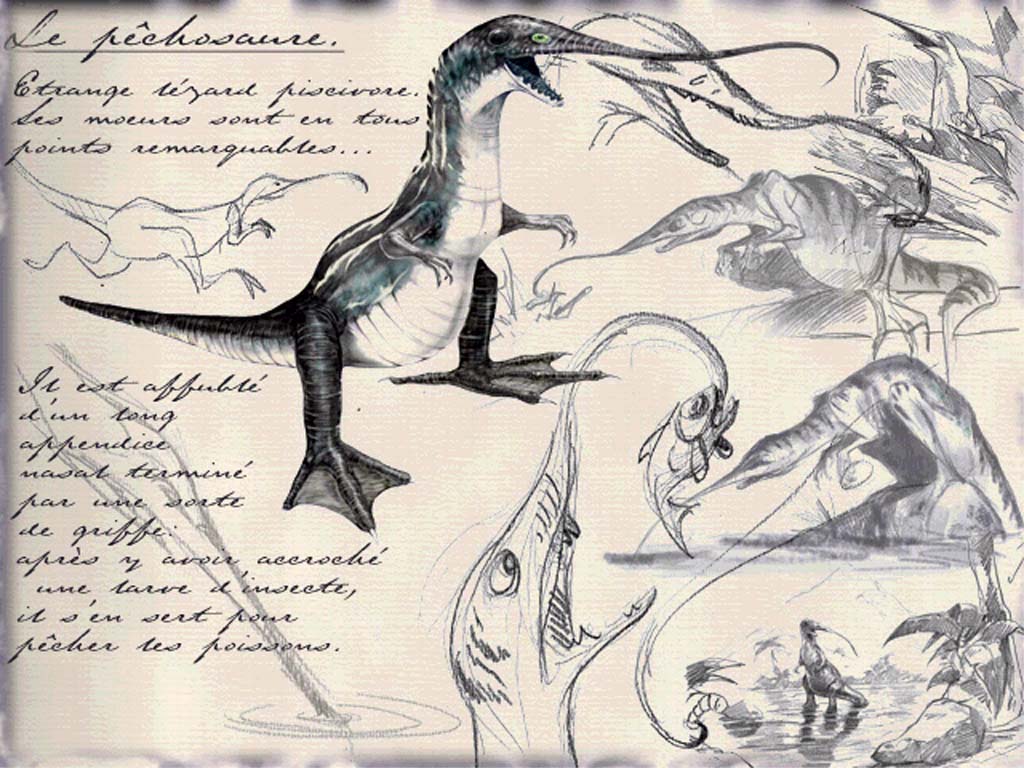 Le pêchosaure.
Etrange lézard piscivore.
Ses moeurs sont en tous
points remarquables...
Il est affublé
d'un long
appendice
nasal terminé
par une sorte
de griffe.
après y avoir accroché
une larve d'insecte,
il s'en sert pour
pêcher les poissons.